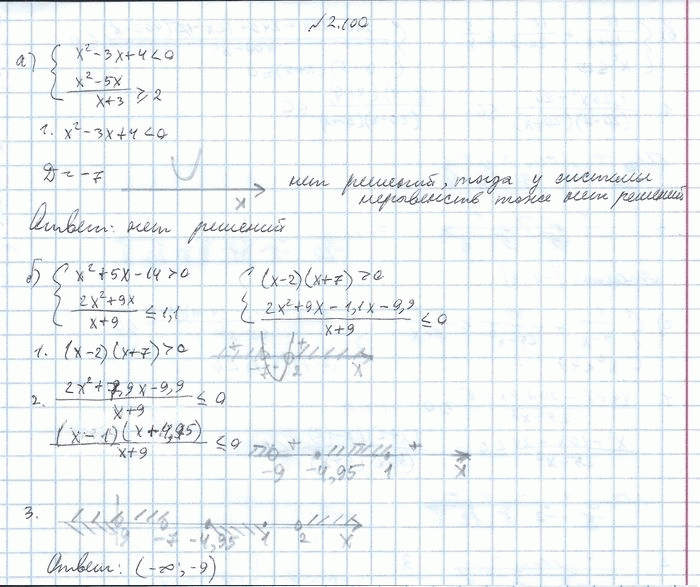 №2.100
а) { x² - 3x + 4 < 0
x² - 5x / x + 3 ≥ 2
1. x² - 3x + 4 < 0
D = -7
x
нет решений, тогда у системы
неравенств тоже нет решений
Ответ: нет решений
б) { x² + 5x - 14 > 0
2x² + 9x / x + 9 ≤ 1,1
{ (x - 2)(x + 7) > 0
2x² + 9x - 1,1x - 9,9 / x + 9 ≤ 0
1. (x - 2)(x + 7) > 0
+ - + -7 2 x
2. 2x² + 7,9x - 9,9 / x + 9 ≤ 0
(x - 1)(x + 4,95) / x + 9 ≤ 0
- + - + -9 -4,95 1 x
3.
-9 -7 -4,95 1 2 x
Ответ: (-∞; -9)